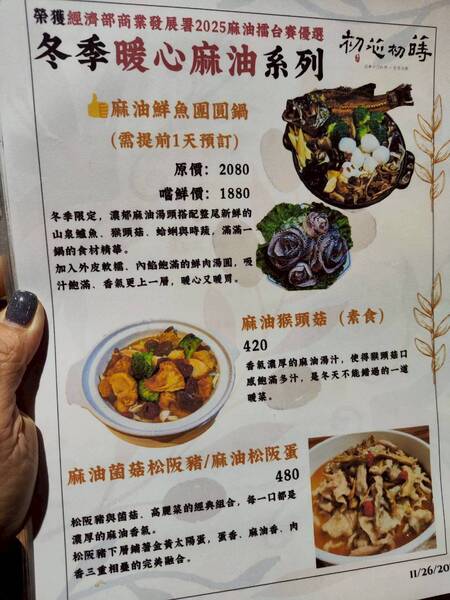 榮獲經濟部商業發展署2025麻油擂台賽優選
冬季暖心麻油系列
初心初時
麻油鮮魚團圓鍋
(需提前1天預訂)
原價: 2080
嚐鮮價: 1880
冬季限定,濃郁麻油湯頭搭配整尾新鮮的
山泉鱸魚、猴頭菇、蛤蜊與時蔬,滿滿一
鍋的食材精華。
加入外皮軟糯、內餡飽滿的鮮肉湯圓,吸
汁飽滿、香氣更上一層,暖心又暖胃。
麻油猴頭菇 (素食)
420
香氣濃厚的麻油湯汁,使得猴頭菇口
感飽滿多汁,是冬天不能錯過的一道
暖菜。
麻油菌菇松阪豬/麻油松阪蛋
480
松阪豬與菌菇、高麗菜的經典組合,每一口都是
濃厚的麻油香氣。
松阪豬下層鋪著金黃太陽蛋,蛋香、麻油香、肉
香三重相疊的完美融合。
11/26/20